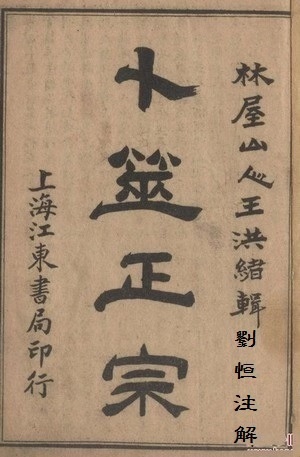 林屋山人王洪緖輯
劉恒注解
卜筮正宗
上海江東書局印行